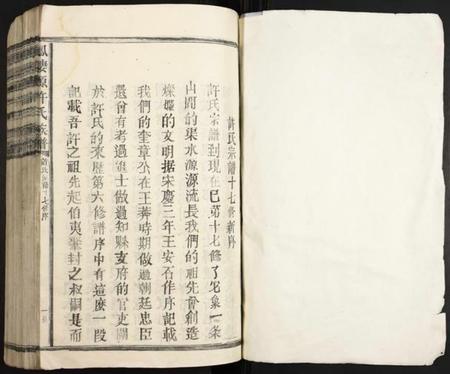 許氏宗譜十七修新序
許氏宗譜到現在已第十七修了宛象一条
山間的渠水源源流長我們的祖先曾創造
燦爛的文明据宋慶三年王安石作序記載
我們的奎章公在王莽時期做過朝廷忠臣
還曾有考過進士做過知縣支府的官吏關
於許氏的來歷第六修譜序中有這麼一段
記載吾許之祖先起伯夷肇封之叔嗣是而
鳳
源許氏族譜
十七修序